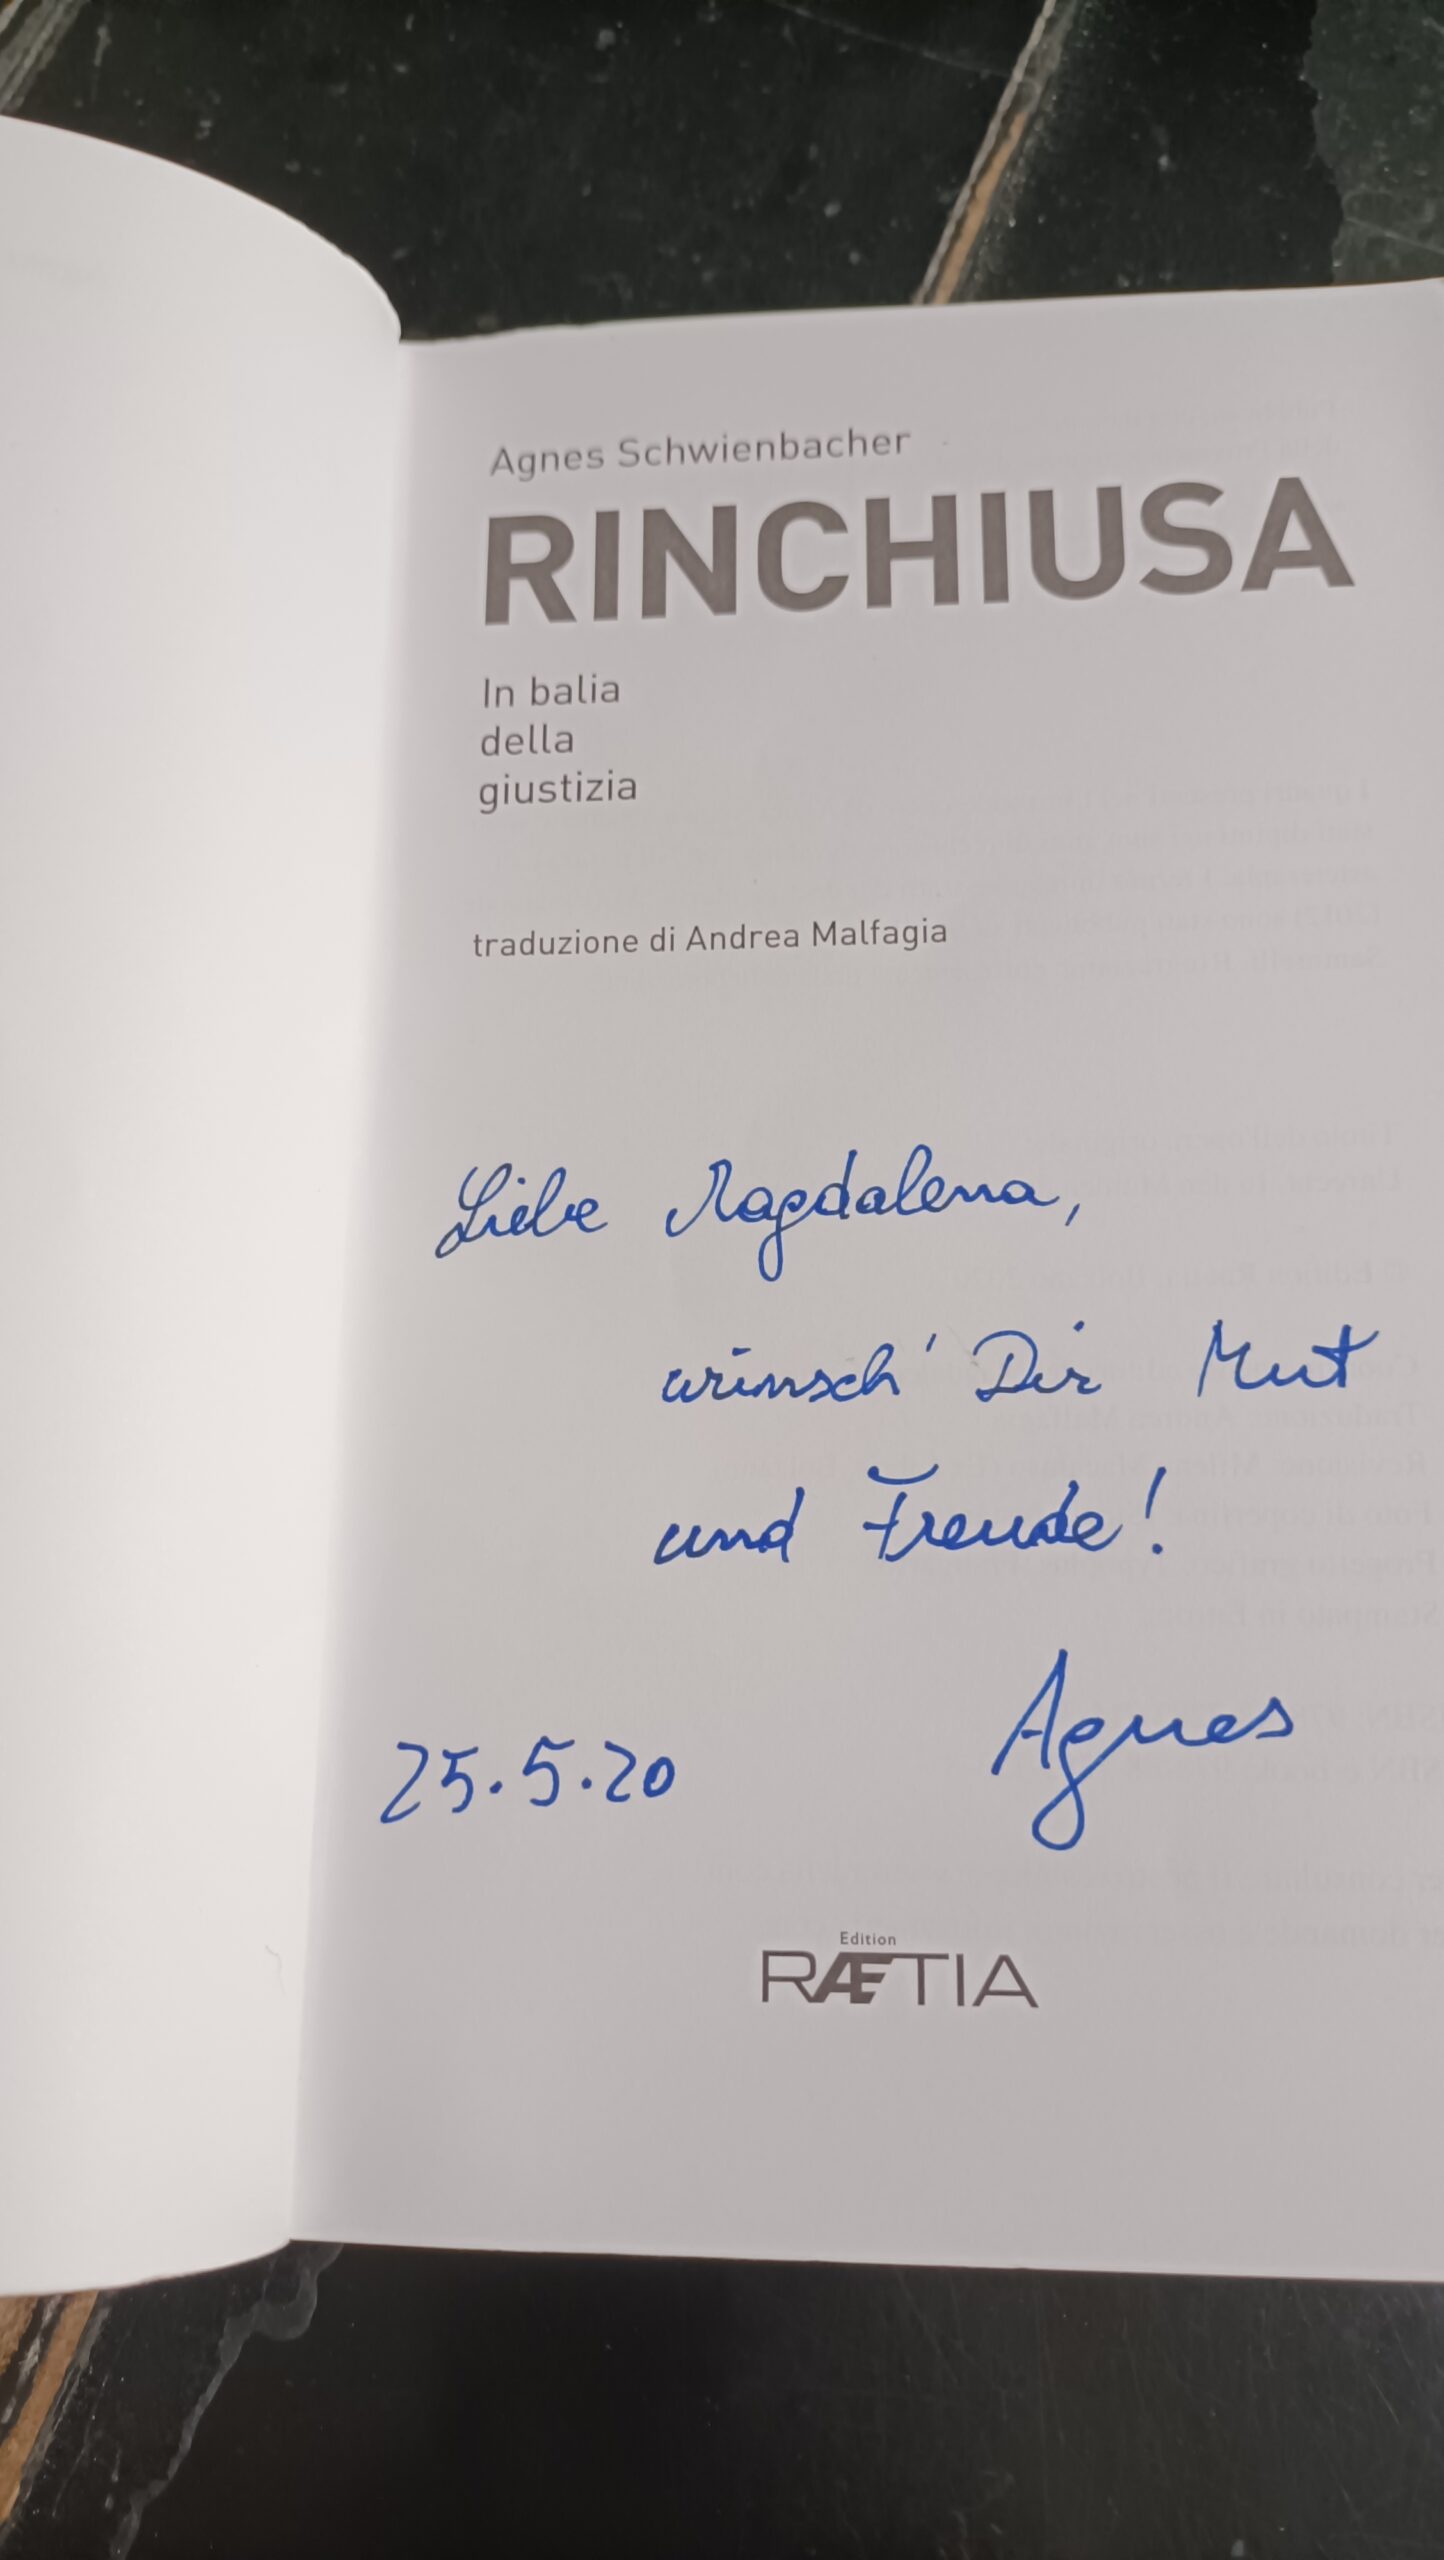 Agnes Schwienbacher
RINCHIUSA
In balia
della
giustizia
traduzione di Andrea Malfagia
Liebe Magdalena,
wünsch' Dir Mut
und Freude!
Agnes
25.5.20
Edition
RÆTIA